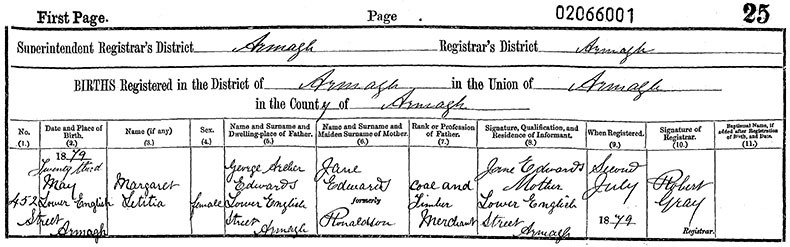 First Page.
Page
02066001
25
Superintendent Registrar's District Armagh Registrar's District Armagh
BIRTHS Registered in the District of Armagh in the Union of Armagh
in the County of Armagh
No. (1.)
Date and Place of Birth. (2.)
Name (if any) (3.)
Sex. (4.)
Name and Surname and Dwelling-place of Father. (5.)
Name and Surname and Maiden Surname of Mother. (6.)
Rank or Profession of Father. (7.)
Signature, Qualification, and Residence of Informant. (8.)
When Registered. (9.)
Signature of Registrar. (10.)
Baptismal Name, if added after Registration of Birth, and Date. (11.)
452
1879
Twenty third
May
Lower English
Street
Armagh
Margaret
Letitia
female
George
Edwards
Lower English
Street Armagh
Jane
Edwards
formerly
Ronaldson
Coal and
Timber
Merchant
Jane Edwards
Mother
Lower English
Street Armagh
Second
July
1879
Robert
Gray
Registrar.